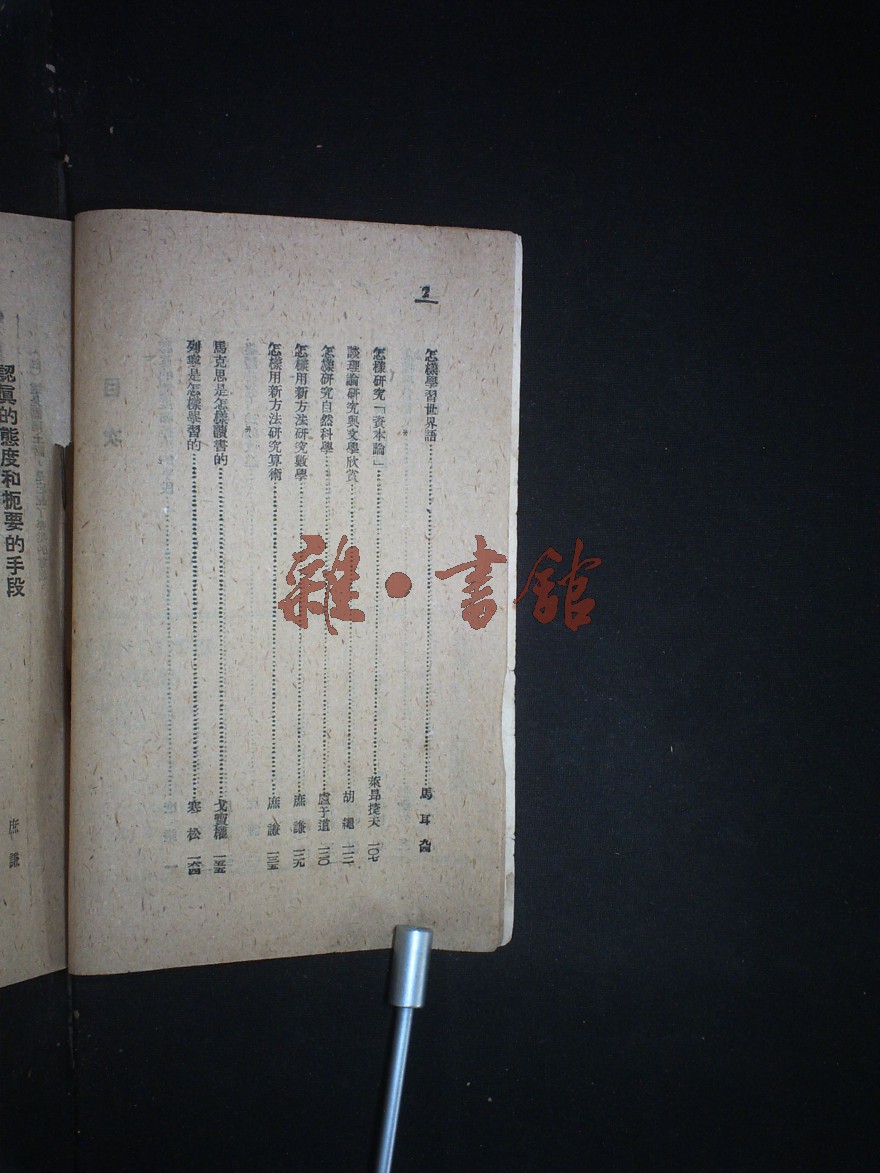 2
怎樣學習世界語⋯⋯馬耳 九四
怎樣研究「資本論」⋯⋯萊昂捷夫 一〇七
談理論研究與文學欣賞⋯⋯胡繩 一一二
怎樣研究自然科學⋯⋯盧于道 一二〇
怎樣用新方法研究數學⋯⋯庶謙 一二九
怎樣用新方法研究算術⋯⋯庶謙 一三五
馬克思是怎樣讀書的⋯⋯戈寶權 一五五
列寧是怎樣學習的⋯⋯寒松 一六四
目次
認眞的態度和扼要的手段
庶謙
雜·書館